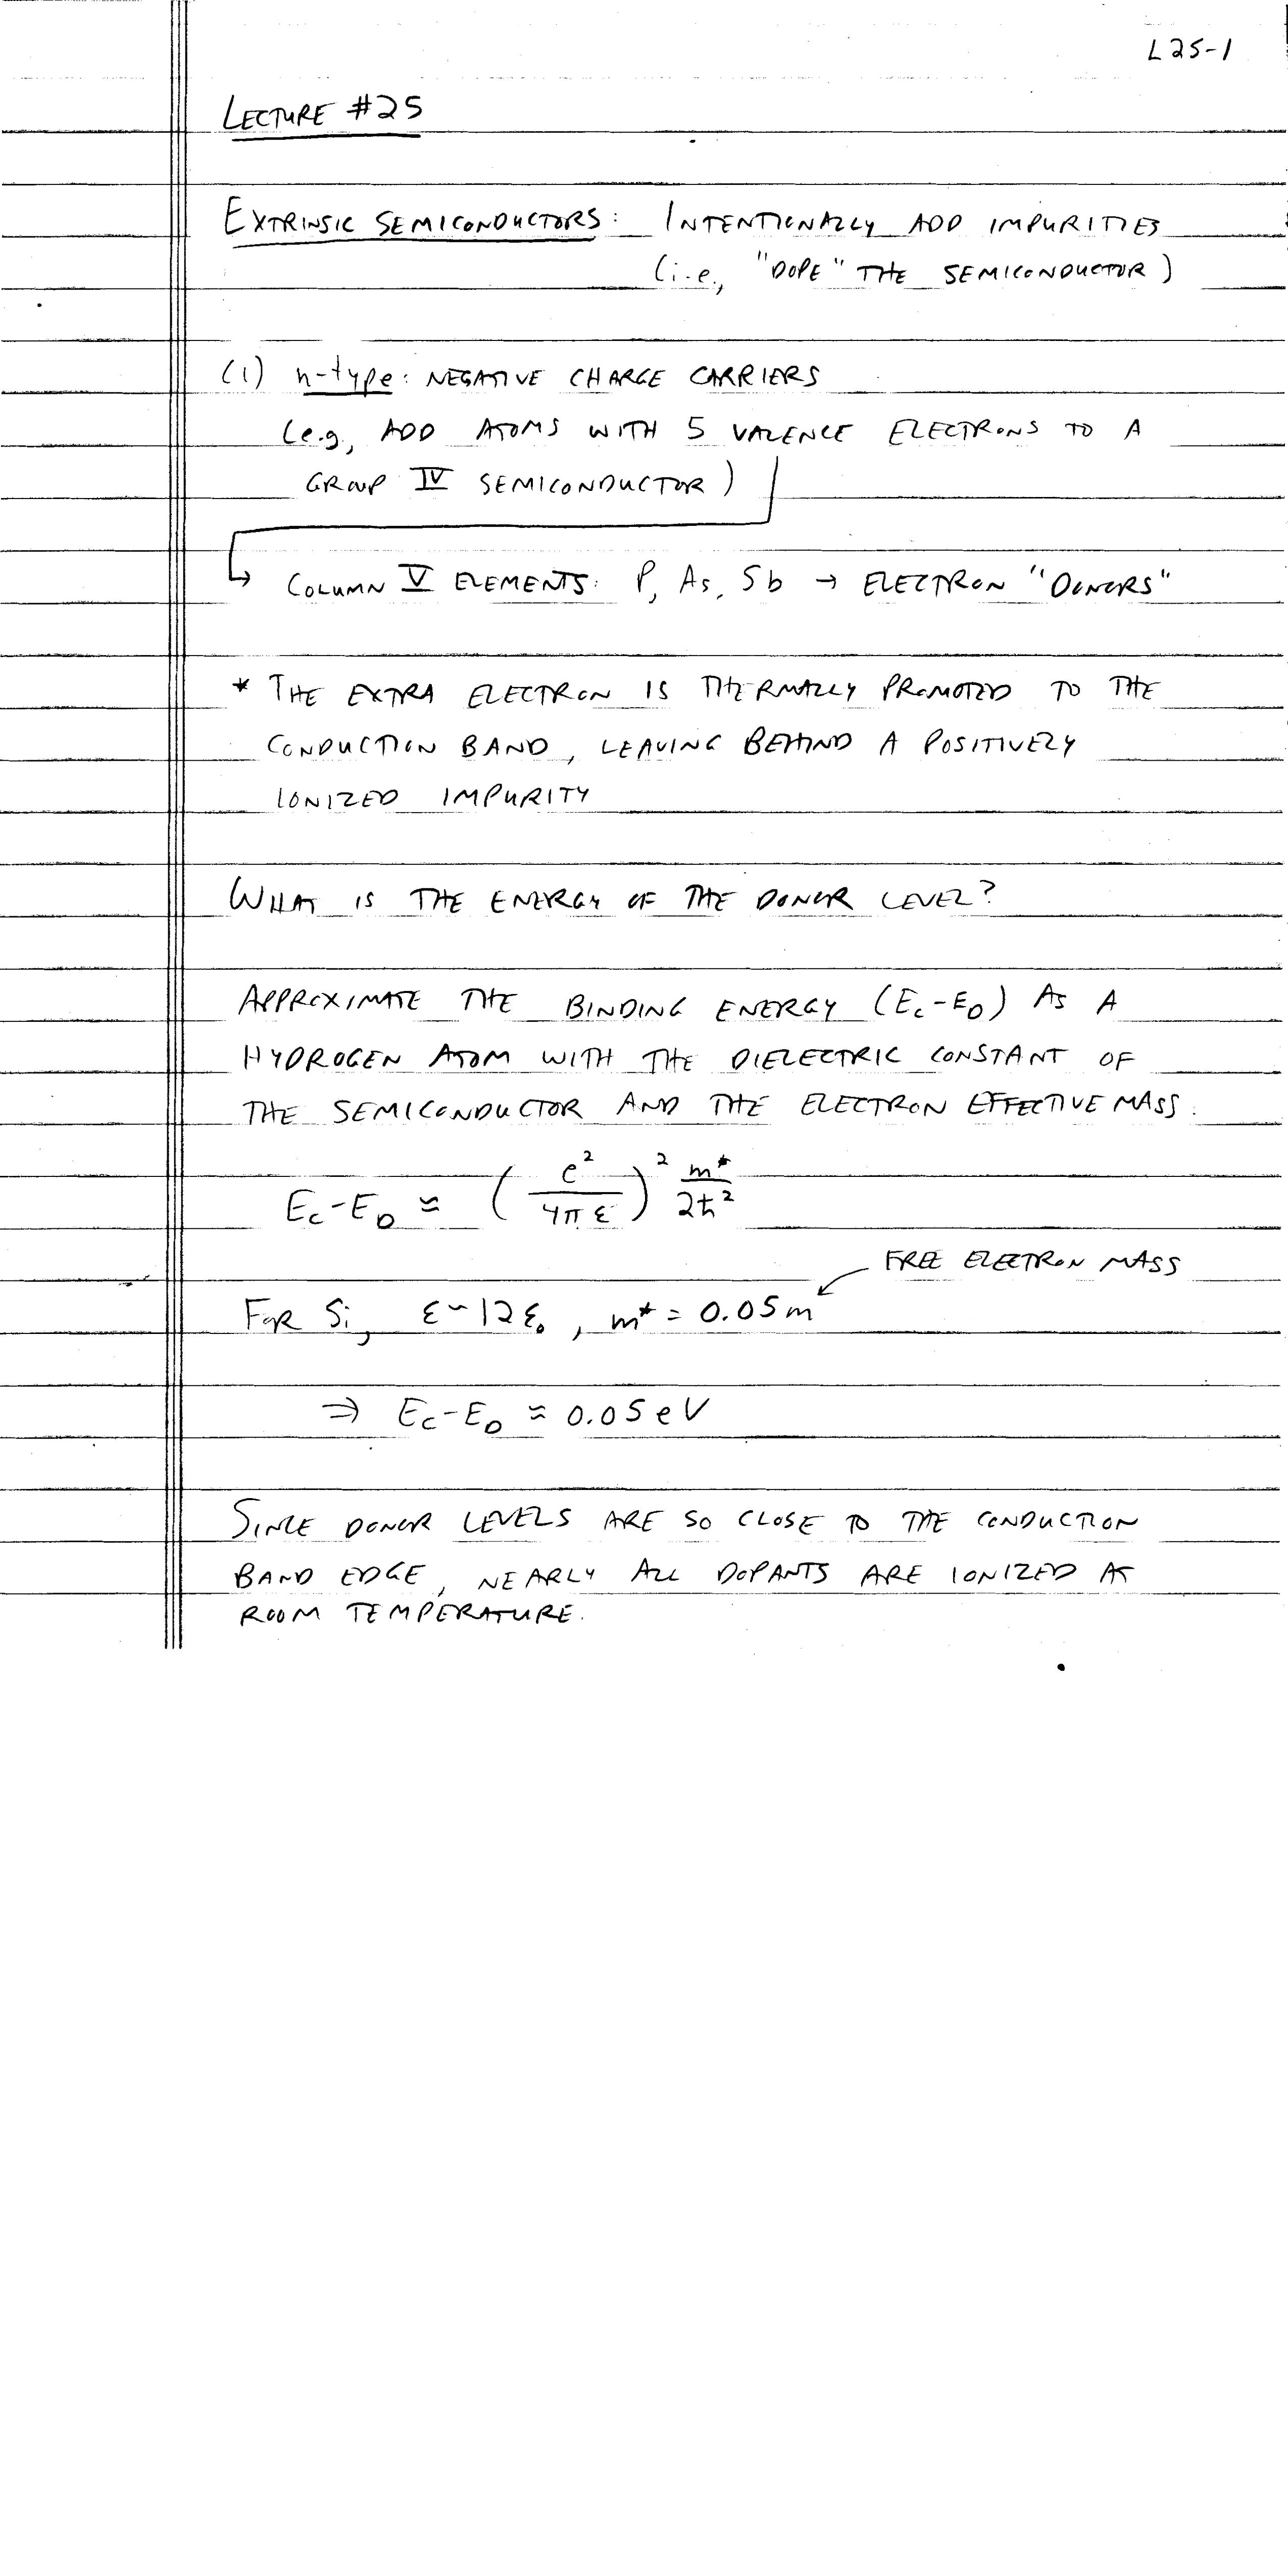 L25-1
LECTURE #25
EXTRINSIC SEMICONDUCTORS: INTENTIONALLY ADD IMPURITIES
(i.e., "DOPE" THE SEMICONDUCTOR)
(1) n-type: NEGATIVE CHARGE CARRIERS
(e.g., ADD ATOMS WITH 5 VALENCE ELECTRONS TO A
GROUP IV SEMICONDUCTOR)
↳ COLUMN V ELEMENTS: P, As, Sb → ELECTRON "DONORS"
* THE EXTRA ELECTRON IS THERMALLY PROMOTED TO THE
CONDUCTION BAND, LEAVING BEHIND A POSITIVELY
IONIZED IMPURITY
WHAT IS THE ENERGY OF THE DONOR LEVEL?
APPROXIMATE THE BINDING ENERGY (E_c-E_D) AS A
HYDROGEN ATOM WITH THE DIELECTRIC CONSTANT OF
THE SEMICONDUCTOR AND THE ELECTRON EFFECTIVE MASS.
E_c-E_D ≈ (e²/4πε)² m*/2ℏ²
FREE ELECTRON MASS
FOR Si, ε~12ε₀, m* = 0.05m
⇒ E_c-E_D ≈ 0.05eV
SINCE DONOR LEVELS ARE SO CLOSE TO THE CONDUCTION
BAND EDGE, NEARLY ALL DOPANTS ARE IONIZED AT
ROOM TEMPERATURE.